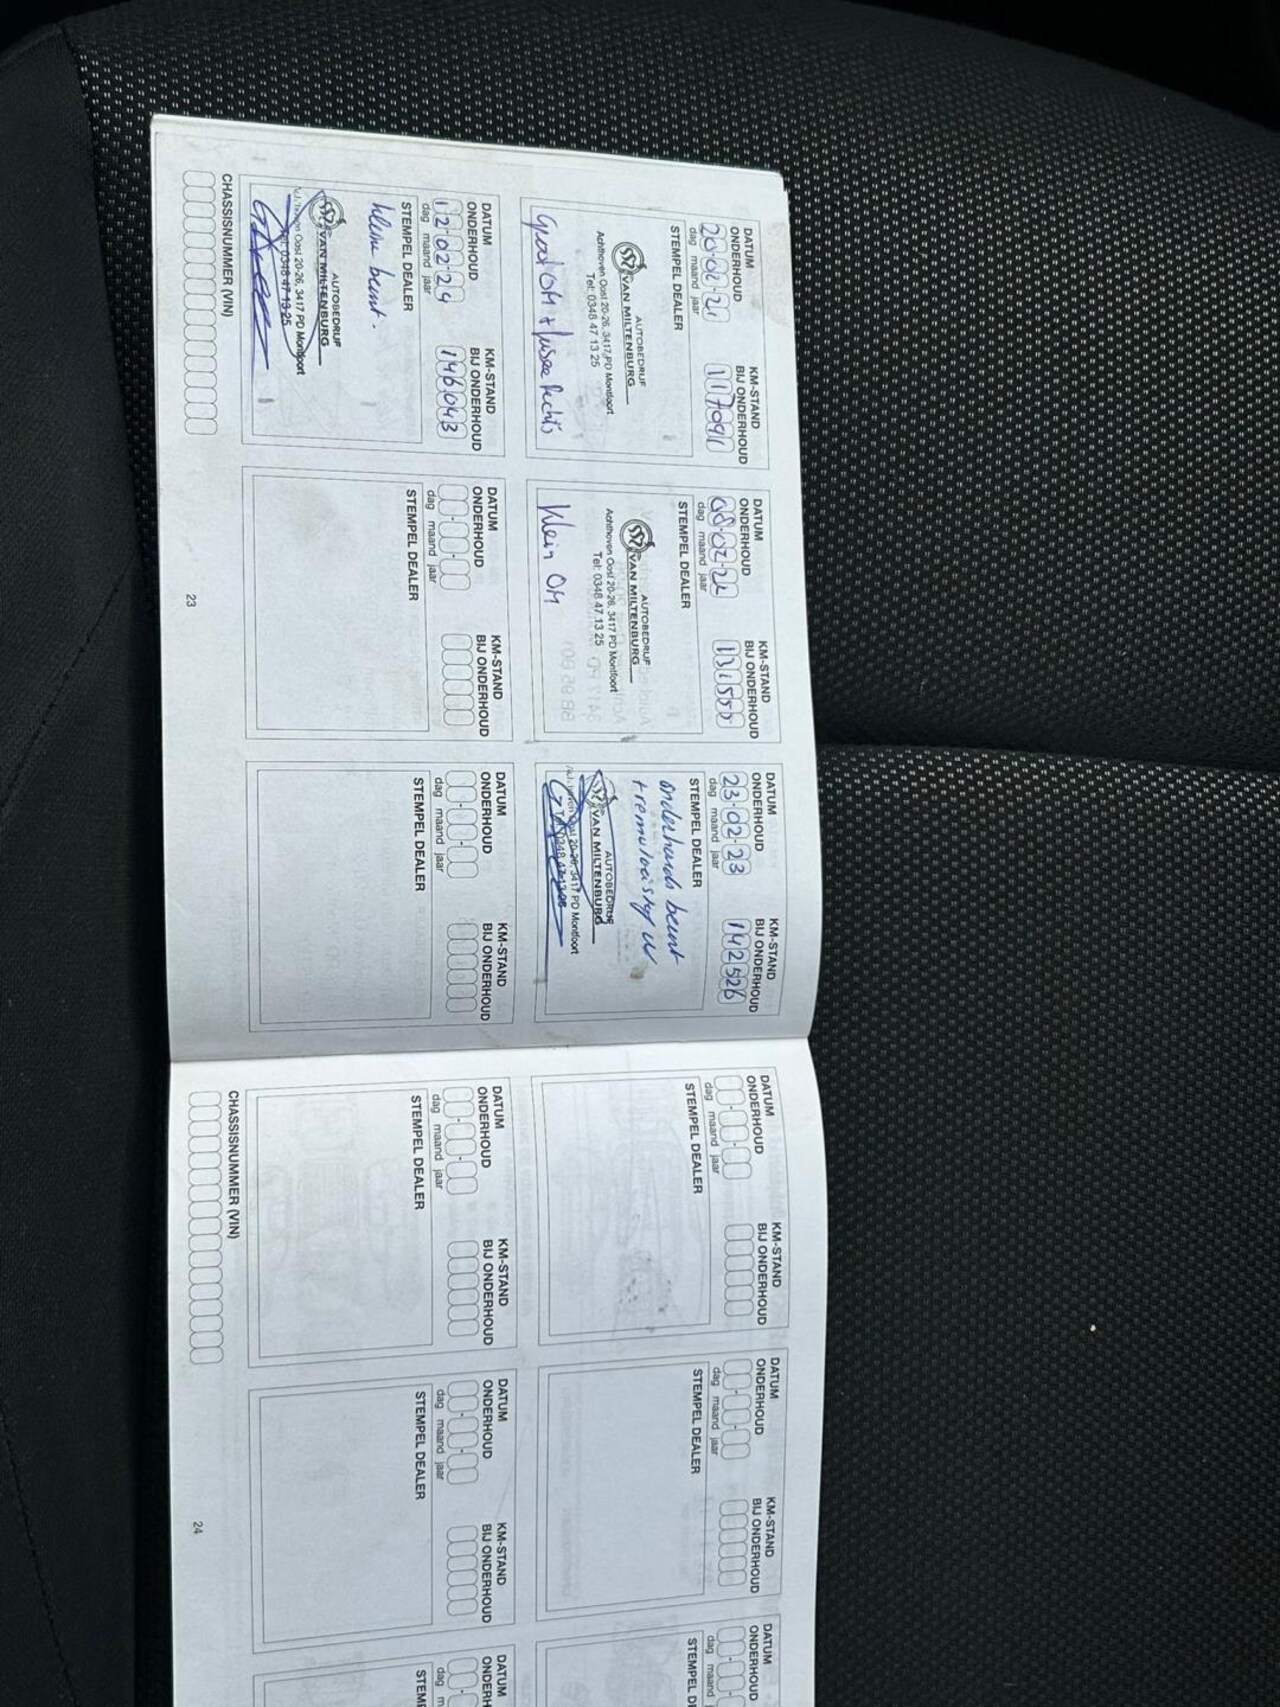 DATUM ONDERHOUD
KM-STAND BIJ ONDERHOUD
20-02-21
117091
dag maand jaar
STEMPEL DEALER
AUTOBEDRIJF
VAN MILTENBURG
Achthoven Oost 20-26, 3417 PD Montfoort
Tel: 0348 47 13 25
DATUM ONDERHOUD
KM-STAND BIJ ONDERHOUD
08-02-22
131550
dag maand jaar
STEMPEL DEALER
AUTOBEDRIJF
VAN MILTENBURG
Achthoven Oost 20-26, 3417 PD Montfoort
Tel: 0348 47 13 25
Klein OH
DATUM ONDERHOUD
KM-STAND BIJ ONDERHOUD
23-02-23
142526
dag maand jaar
STEMPEL DEALER
onderhouds beurt
AUTOBEDRIJF
VAN MILTENBURG
Oost 20-26, 3417 PD Montfoort
0348 47 13 25
DATUM ONDERHOUD
KM-STAND BIJ ONDERHOUD
12-02-24
146043
dag maand jaar
STEMPEL DEALER
kleine beurt.
AUTOBEDRIJF
VAN MILTENBURG
Oost 20-26, 3417 PD Montfoort
Tel: 0348 47 13 25
DATUM ONDERHOUD
KM-STAND BIJ ONDERHOUD
dag maand jaar
STEMPEL DEALER
DATUM ONDERHOUD
KM-STAND BIJ ONDERHOUD
dag maand jaar
STEMPEL DEALER
CHASSISNUMMER (VIN)
23
DATUM ONDERHOUD
KM-STAND BIJ ONDERHOUD
dag maand jaar
STEMPEL DEALER
DATUM ONDERHOUD
KM-STAND BIJ ONDERHOUD
dag maand jaar
STEMPEL DEALER
DATUM ONDERHOUD
dag maand
STEMPEL
DATUM ONDERHOUD
KM-STAND BIJ ONDERHOUD
dag maand jaar
STEMPEL DEALER
DATUM ONDERHOUD
KM-STAND BIJ ONDERHOUD
dag maand jaar
STEMPEL DEALER
DATUM
dag
CHASSISNUMMER (VIN)
24